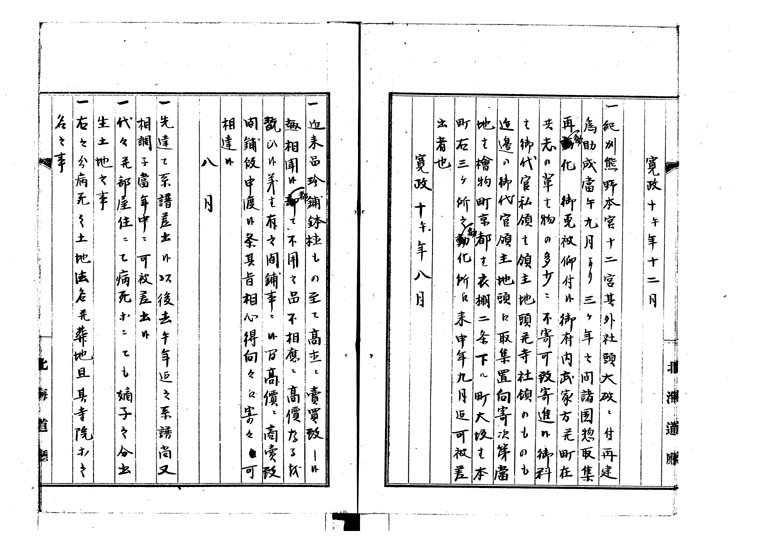 寛政十午年十二月
一紀州熊野本宮十二宮其外社頭大破ニ付再建
為助成當午九月ゟ三ヶ年之間諸国惣取集
再勧化 御免被仰付候御府内武家方并町在
共志の輩ハ物の多少ニ不寄可致寄進候御料
ハ御代官私領ハ領主地頭并寺社領のものも
近邊の御代官領主地頭江取集置向寄次第當
地ハ檜物町京都ハ衣棚二条下ル町大坂ハ本
町右三ヶ所之勧化所江来申年九月迄可被差
出者也
寛政十午年八月
北海道廳
一近来品珍鋪鉢植もの至て高直ニ賣買致し候
趣相聞候都て不用之品不相應ニ高價なるを
翫ひ候義ハ有之間鋪事ニ候間高價ニ商賣致
間鋪段申渡候条其旨相心得向々江寄々可
相達候
八月
一先達て系譜差出候以後去午年迄之系譜尚又
相調子當年中ニ可被差出候
一代々并部屋住ニて病死等ニても嫡子之分出
生土地之事
一右之分病死之土地法名并葬地且其寺院等之
名之事
北海道廳